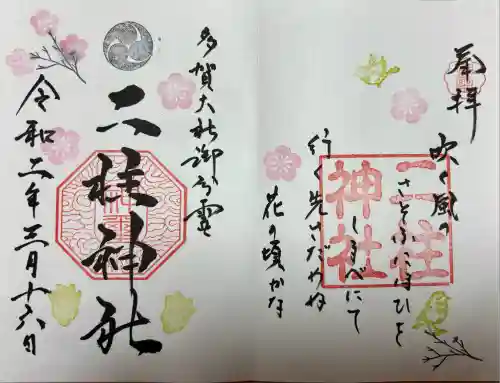 奉拝
二柱
神社
吹く風の
さそふたよひと
しらべにて
行く先はだやぬ
花の頃かな
多賀大社御分霊
二柱神社
令和二年三月十六日